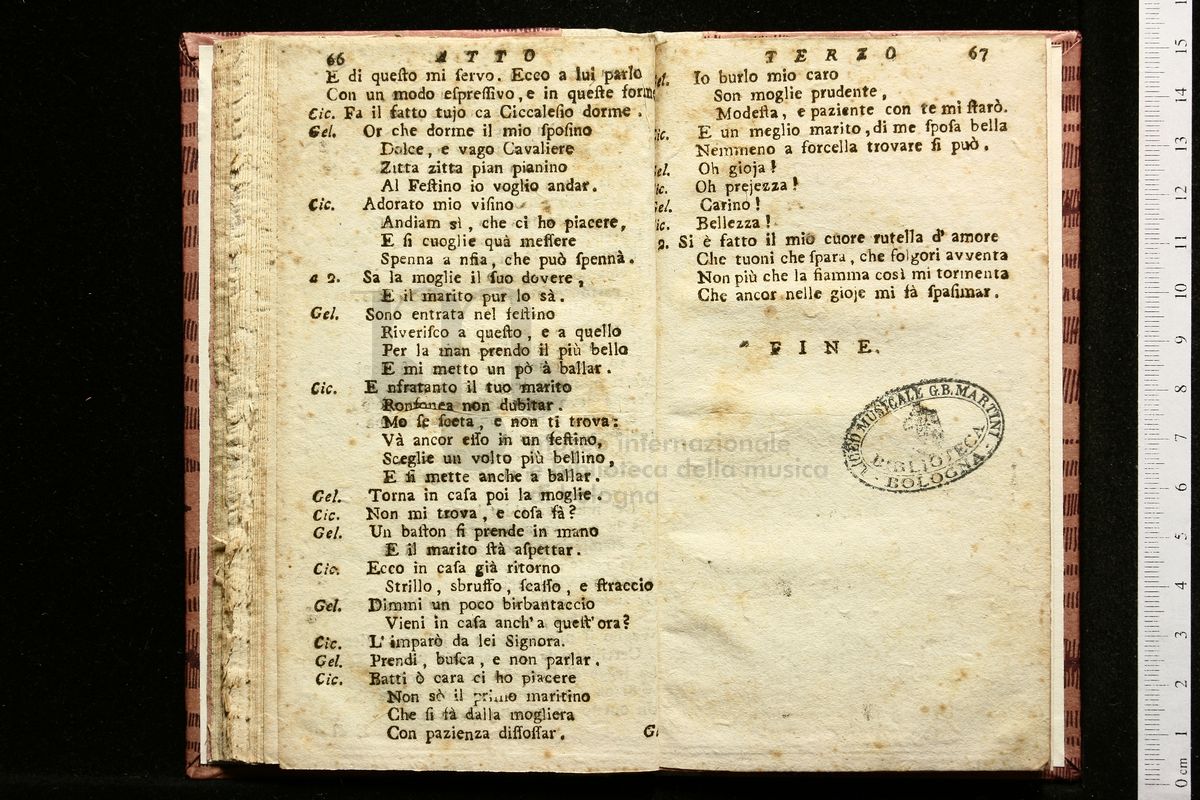 66 ATTO
E di questo mi servo. Ecco a lui parlo
Con un modo espressivo, e in queste form
Cic. Fa il fatto tujo ca Ciccalesio dorme.
Gel. Or che dorme il mio sposino
Dolce, e vago Cavaliere
Zitta zitta pian pianino
Al Festino io voglio andar.
Cic. Adorato mio visino
Andiam sì, che ci ho piacere,
E si cuoglie quà messere
Spenna a nsia, che può spennà.
a 2. Sa la moglie il suo dovere,
E il marito pur lo sà.
Gel. Sono entrata nel festino
Riverisco a questo, e a quello
Per la man prendo il più bello
E mi metto un pò à ballar.
Cic. E nfratanto il tuo marito
Ronfonea non dubitar.
Mo se sceta, e non ti trova:
Và ancor esso in un festino,
Sceglie un volto più bellino,
E si mette anche a ballar.
Gel. Torna in casa poi la moglie.
Cic. Non mi trova, e cosa fà?
Gel. Un baston si prende in mano
E il marito stà aspettar.
Cic. Ecco in casa già ritorno
Strillo, sbruffo, scasso, e straccio
Gel. Dimmi un poco birbantaccio
Vieni in casa anch'a quest'ora?
Cic. L'imparò da lei Signora.
Gel. Prendi, busca, e non parlar.
Cic. Batti ò cara ci ho piacere
Non sò il primo maritino
Che si fà dalla mogliera
Con pazienza dissossar.
G
TERZO 67
el. Io burlo mio caro
Son moglie prudente,
Modesta, e paziente con te mi starò.
ic. E un meglio marito, di me sposa bella
Nemmeno a forcella trovare si può.
el. Oh gioja!
ic. Oh prejezza!
Gel. Carino!
ic. Bellezza!
2. Si è fatto il mio cuore rutella d'amore
Che tuoni che spara, che folgori avventa
Non più che la fiamma così mi tormenta
Che ancor nelle gioje mi fà spasimar.
FINE.
LICEO MUSICALE G.B. MARTINI
BIBLIOTECA
- BOLOGNA -
internazionale
e biblioteca della musica
bologna
0 cm 1 2 3 4 5 6 7 8 9 10 11 12 13 14 15